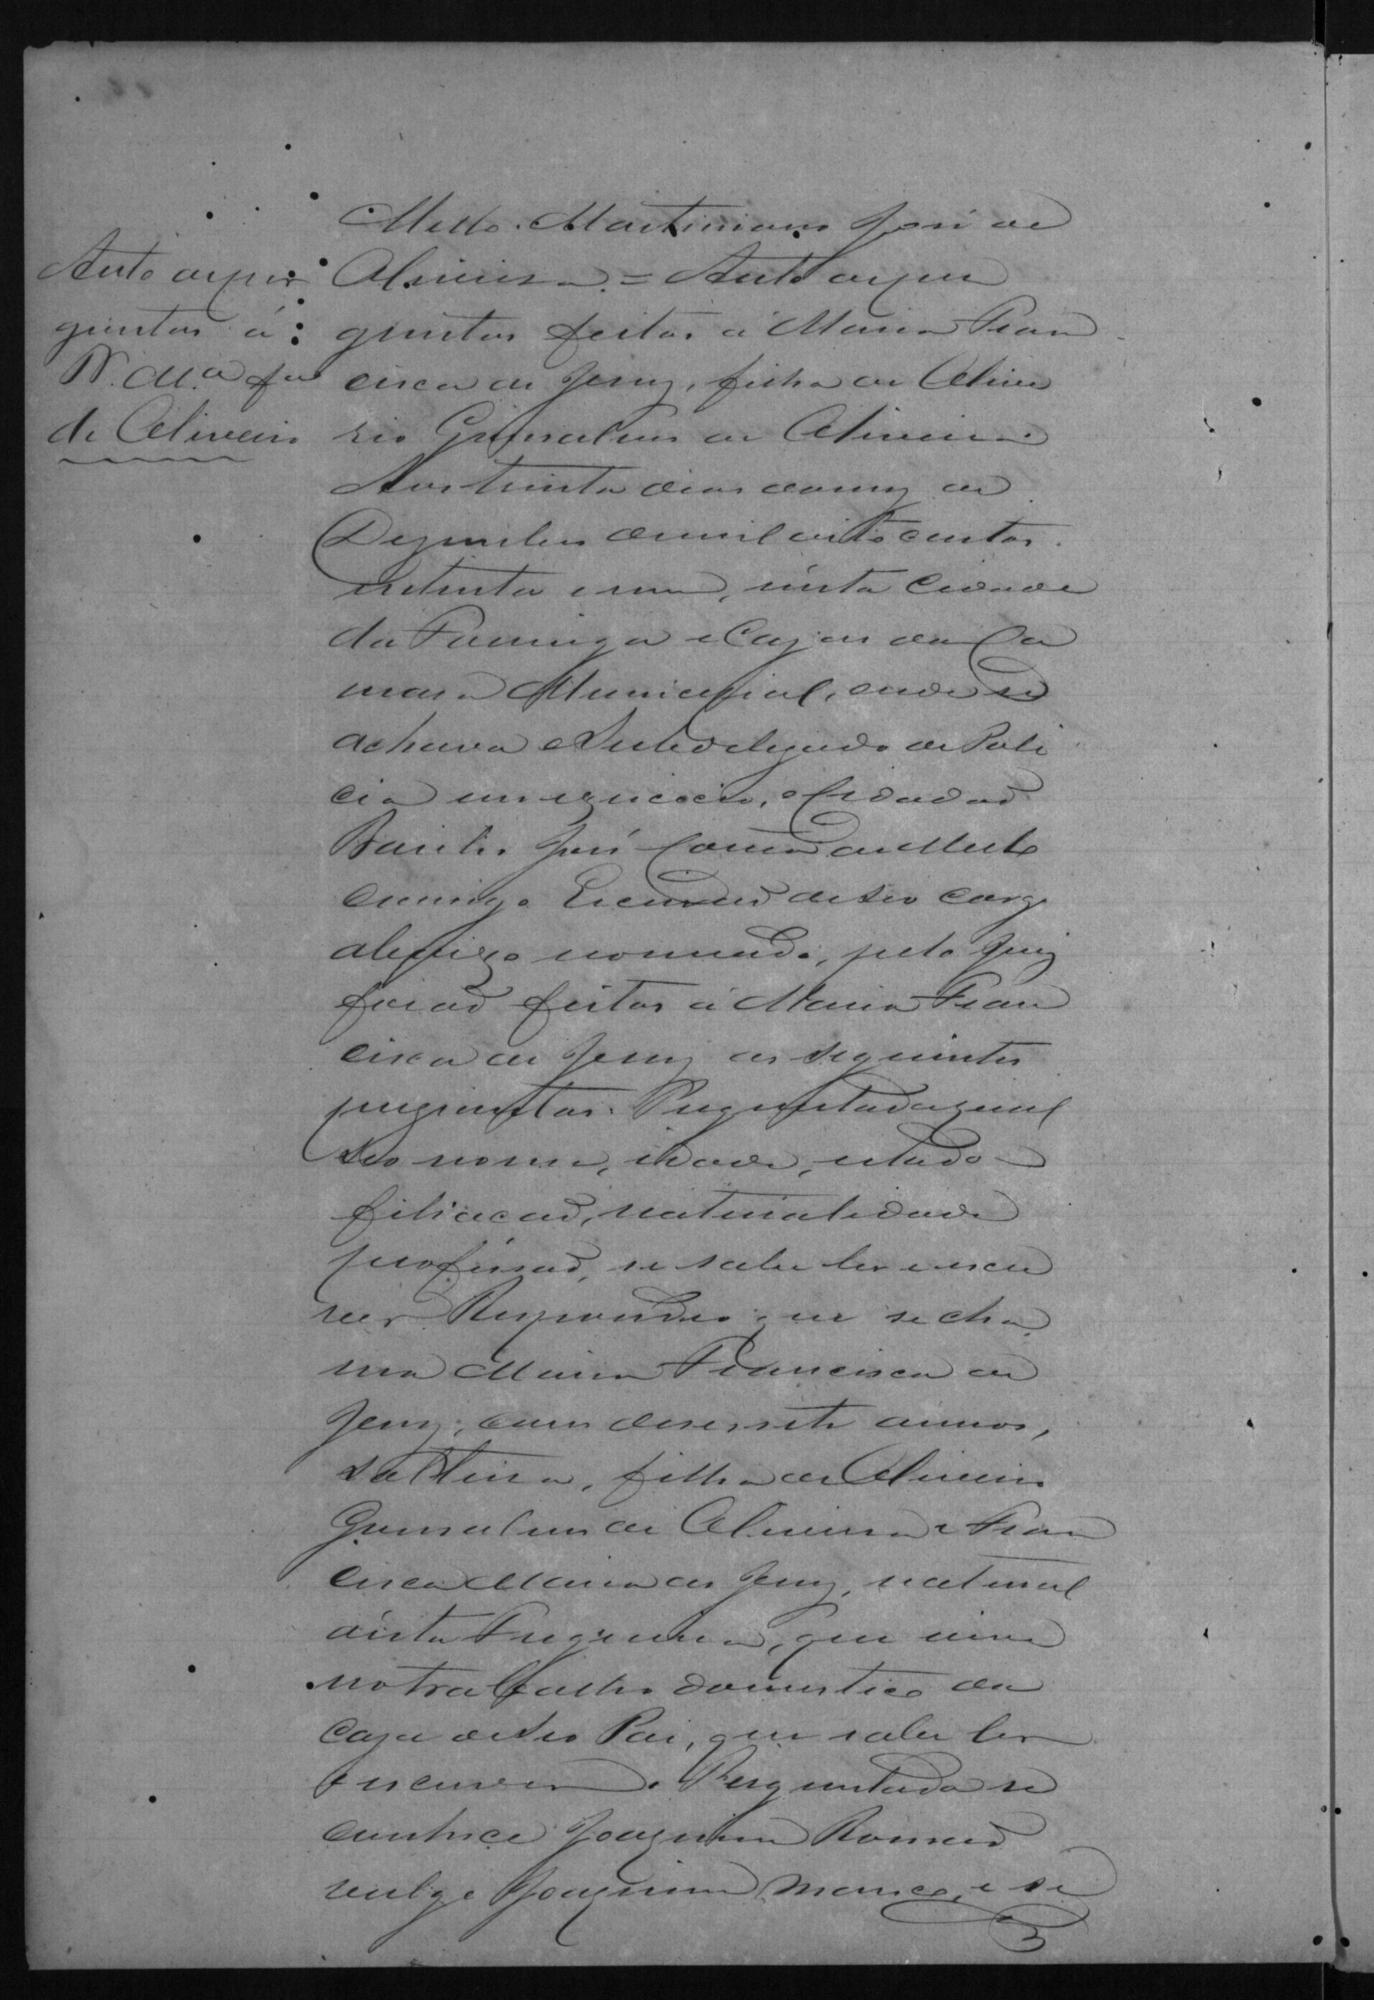 Auto de per
guntas á
de Oliveira
Mello. Martiniano José de
Oliveira. = Auto de per
guntas feitas á Maria Fran
cisca de Jesuz, filha de Olive
rio Gonsalves de Oliveira.
Aos trinta dias do mez de
Dezembro de mil oito centos
e setenta e um, nésta Cidade
da Formiga e Caza da Ca
mara Municipal, onde se
achava o Subdelegado de Poli
cia em exercicio, o Cidadaõ
Basilio José Correa de Mello
comigo Escrivaõ de seo cargo
abaixo nomeado, pelo Juiz
foraõ feitas á Maria Fran
cisca de Jesuz as seguintes
perguntas. Perguntada qual
seo nome, idade, estado
filiacaõ, naturalidade
profissaõ, se sabe ler e escre
ver. Respondeo que se cha
ma Maria Francisca de
Jesuz, com desessete annos,
solteira, filha de Oliverio
Gonsalves de Oliveira e Fran
cisca Maria de Jesuz, natural
désta Freguezia, que vive
no trabalho domestico da
caza de seo Pai, que sabe ler
e escrever. Perguntada se
conhece Joaquim Romaõ
vulgo Joaquim Manco, e se